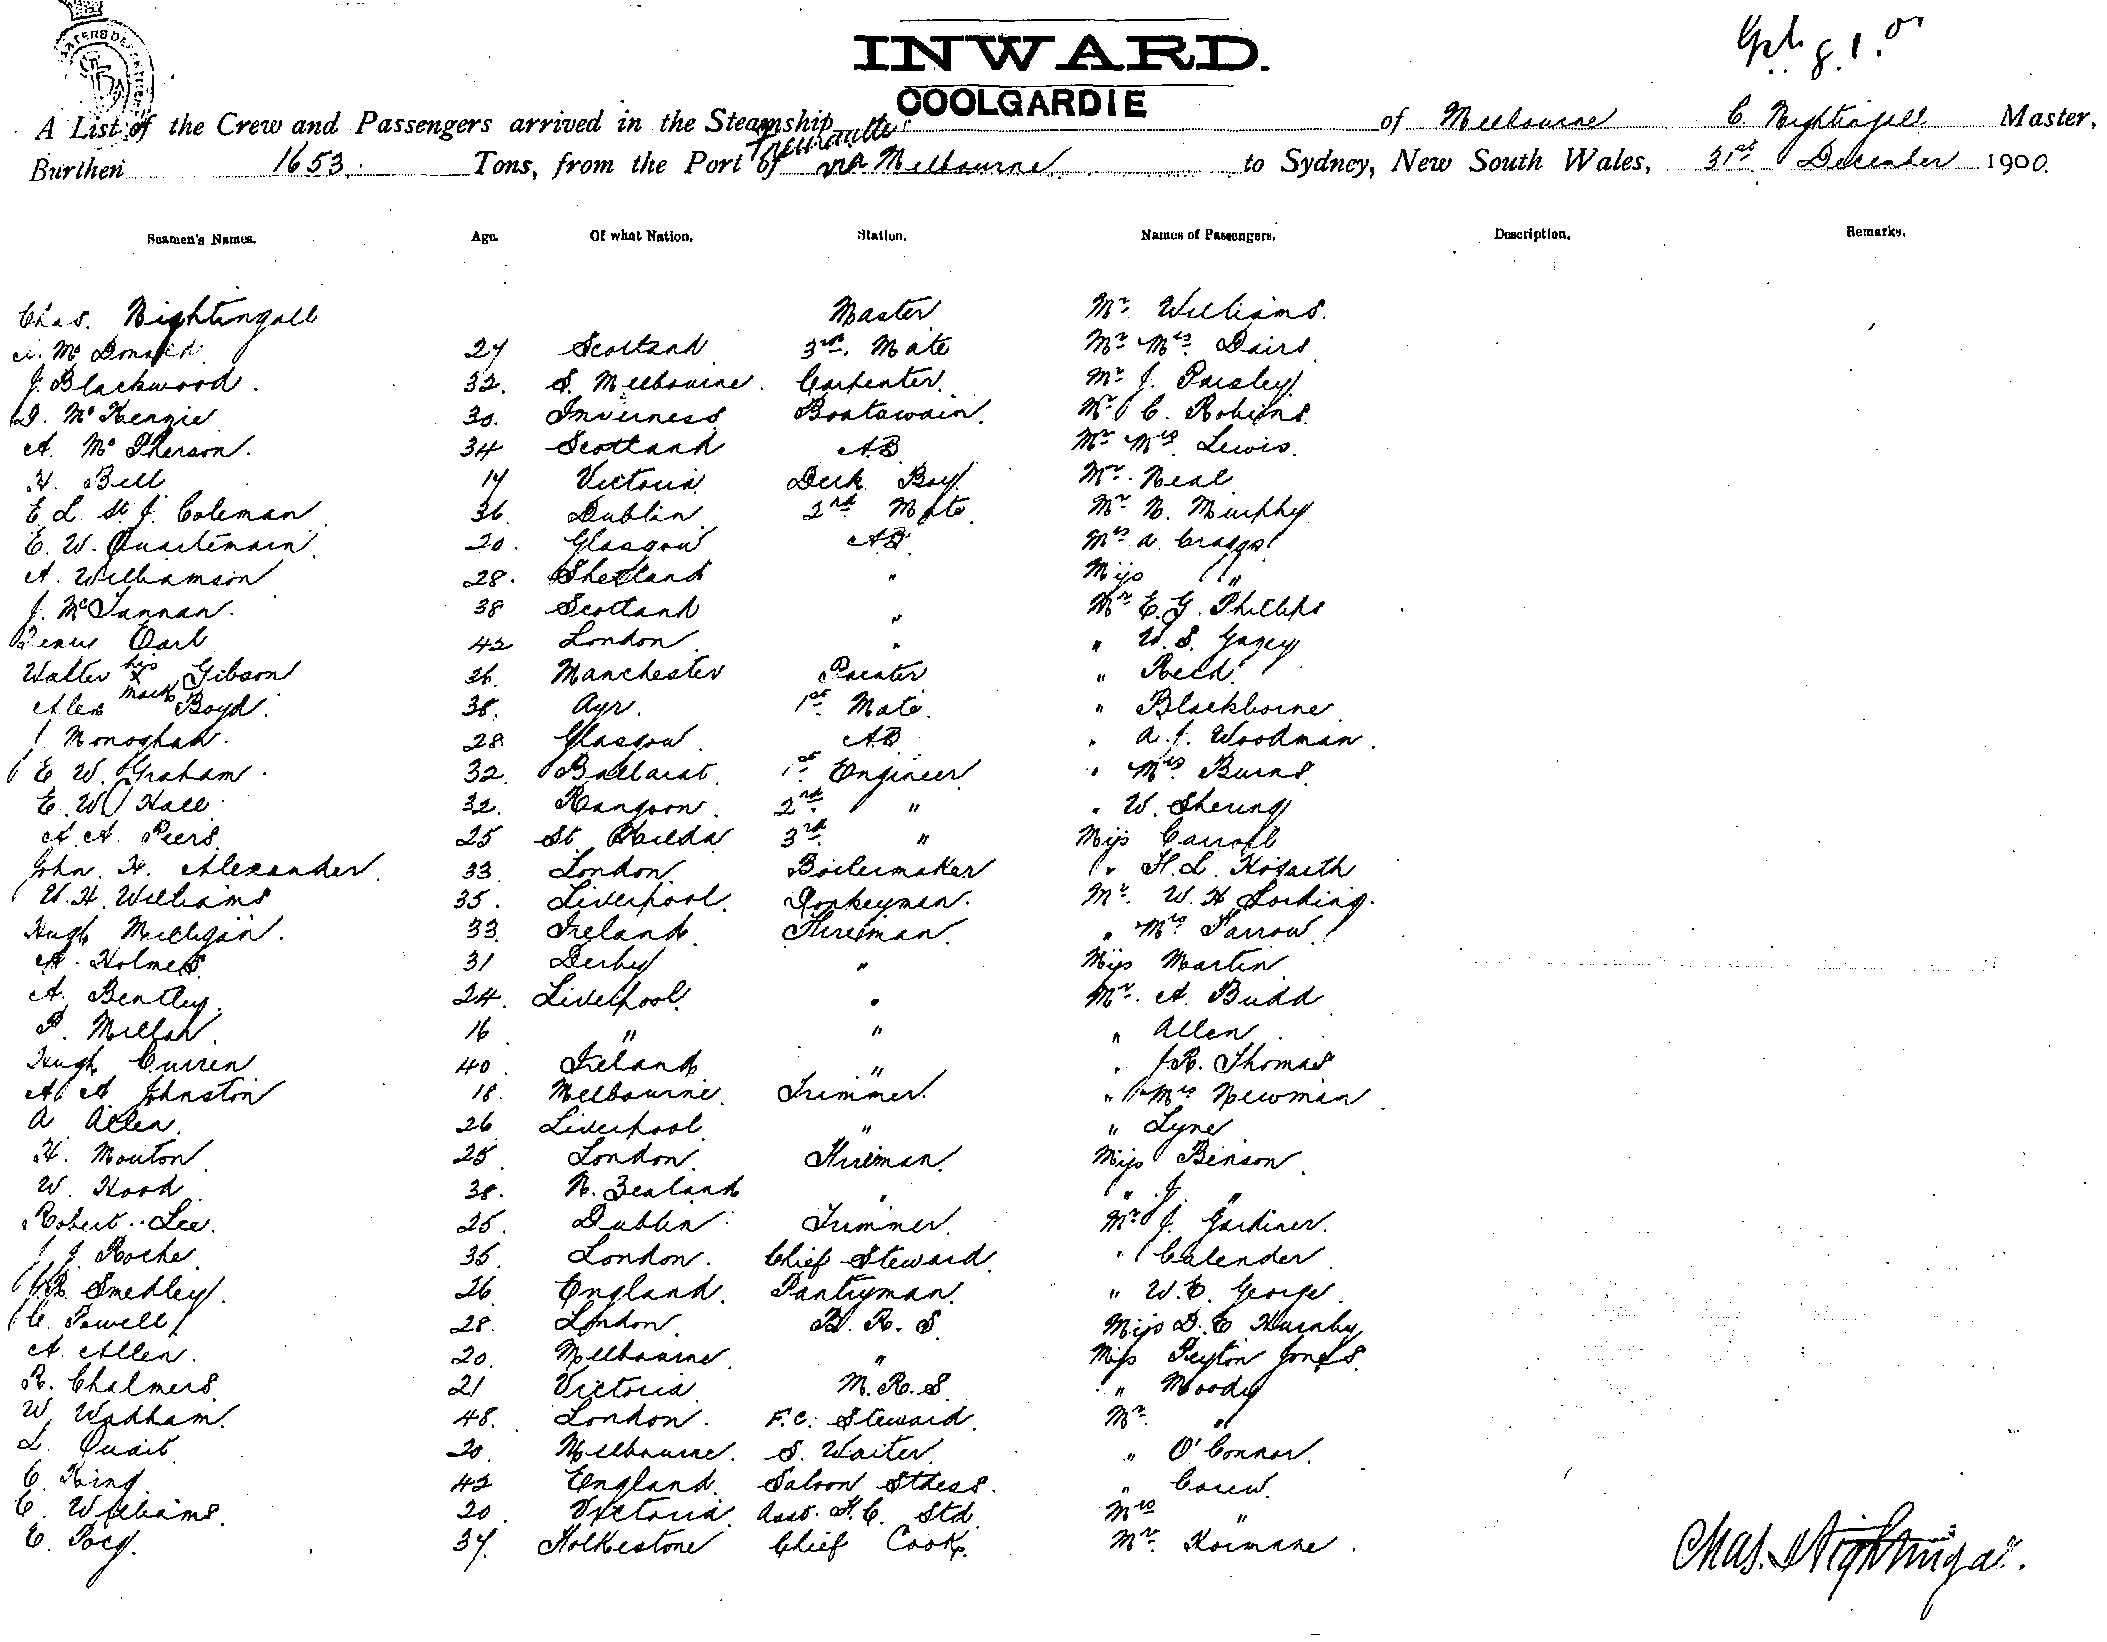 INWARD.
COOLGARDIE
A List of the Crew and Passengers arrived in the Steamship of Melbourne C. Nightingall Master,
Burthen 1653. Tons, from the Port of Fremantle via Melbourne to Sydney, New South Wales, 31st December 1900.
Seamen's Names. Age. Of what Nation. Station. Names of Passengers. Description. Remarks.
Chas. Nightingall Master Mr. Williams.
Mc Donald 27 Scotland 3rd. Mate Mr Mrs. Dairs
J. Blackwood. 32. S. Melbourne. Carpenter. Mr J. Paisley
D. McKenzie 30. Inverness Boatswain. Mr C. Robins.
A. McPherson. 34 Scotland AB Mr Mrs Lewis.
H. Bell 17 Victoria Deck Boy. Mr. Neal
E L St. J. Coleman 36. Dublin. 2nd Mate. Mr N. Murphy
E. W. Quartermain. 20. Glasgow AB Mrs A. Craggs
A. Williamson 28. Shetland " Miss "
J. McLannan. 38 Scotland " Mr E. G. Phillips
Earl 42 London. " " W. S. Gazey
Walter his x mark Gibson 26. Manchester Painter " Reed
Alex Boyd. 38. Ayr. 1st. Mate. " Blackborne
J Monoghan. 28 Glasgow. AB " A. J. Woodman.
E W. Graham. 32. Ballarat. 1st. Engineer " Mrs Burns.
E. W. Hall. 32. Rangoon. 2nd. " " W. Shering
A. A. Peers. 25 St. Kilda 3rd. " Miss Carroll
John. H. Alexander. 33. London. Boilermaker " H. L. Hogarth
W. H. Williams 35. Liverpool. Donkeyman. Mr. W. H. Locking.
Hugh Milligan. 33. Ireland. Fireman. " Mrs Farrow.
A. Holmes. 31 Derby " Miss Martin.
A. Bentley. 24. Liverpool. " Mr. A. Budd
P. Millar. 16 " " " Allen.
Hugh Curren 40. Ireland. " " J. R. Thomas
A. A. Johnston 18. Melbourne. Trimmer. " Mrs Newman
A Allen. 26 Liverpool. " " Lyne
H. Mouton. 25. London. Fireman. Miss Benson.
W. Hood. 38. N. Zealand " " J. "
Robert Lee. 25. Dublin. Trimmer. Mr J. Gardiner.
J. J. Roche. 35. London. Chief Steward. " Calender
Smedley. 26 England. Pantryman. " W. E. George.
C. Powell 28. London. B. R. S. Miss D. E
A. Allen. 20. Melbourne. " Miss Peyton Jones.
R. Chalmers. 21 Victoria. M. R. S. " Moody
W. Wadham. 48. London. F. C. Steward. Mr. "
L. Quait. 20. Melbourne. S. Waiter. " O'Connor.
C. King 42 England. Saloon Stdess. "
C. Williams. 20. Victoria. Asst. F. C. Std. Mrs "
E. 37. Folkestone Chief Cook. Mr.
Chas. Nightingall.